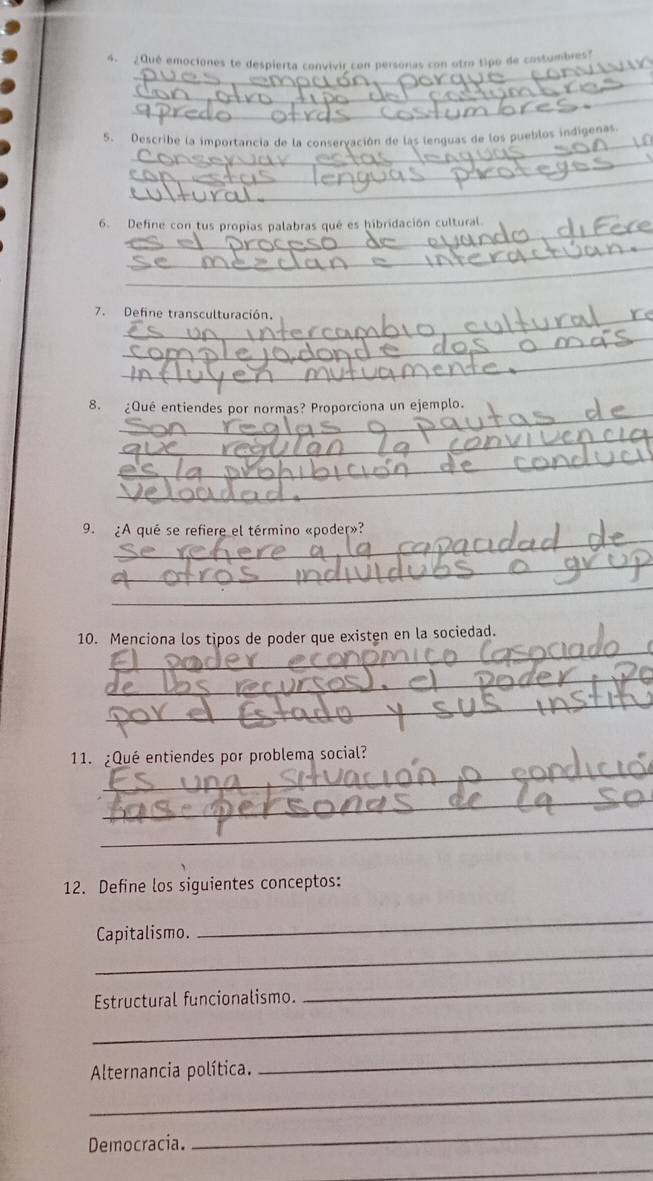 4. ¿Qué emociones te despierta convivir con personas con otro tipo de costumbres?
pues empación, porque convivir
con otro tipo de costumbres
apredo otras costumbres.
5. Describe la importancia de la conservación de las lenguas de los pueblos indígenas.
Conservar estas lenguas son
con estas lenguas proteges
cultural.
6. Define con tus propias palabras qué es hibridación cultural.
es el proceso de cuando difere
se mezclan e interactúan.
7. Define transculturación.
Es un intercambio cultural
compleja, donde dos o más
influyen mutuamente.
8. ¿Qué entiendes por normas? Proporciona un ejemplo.
son reglas o pautas de
que regulan la convivencia
es la prohibición de conduci
veloadad.
9. ¿A qué se refiere el término «poder»?
se refiere a la capacidad de
a otros individuos o grup
10. Menciona los tipos de poder que existen en la sociedad.
El poder económico (asociado
de los recursos). el poder, po
por el Estado y sus institu
11. ¿Qué entiendes por problema social?
Es una situación o condición
personas de la so
12. Define los siguientes conceptos:
Capitalismo.
Estructural funcionalismo.
Alternancia política.
Democracia.